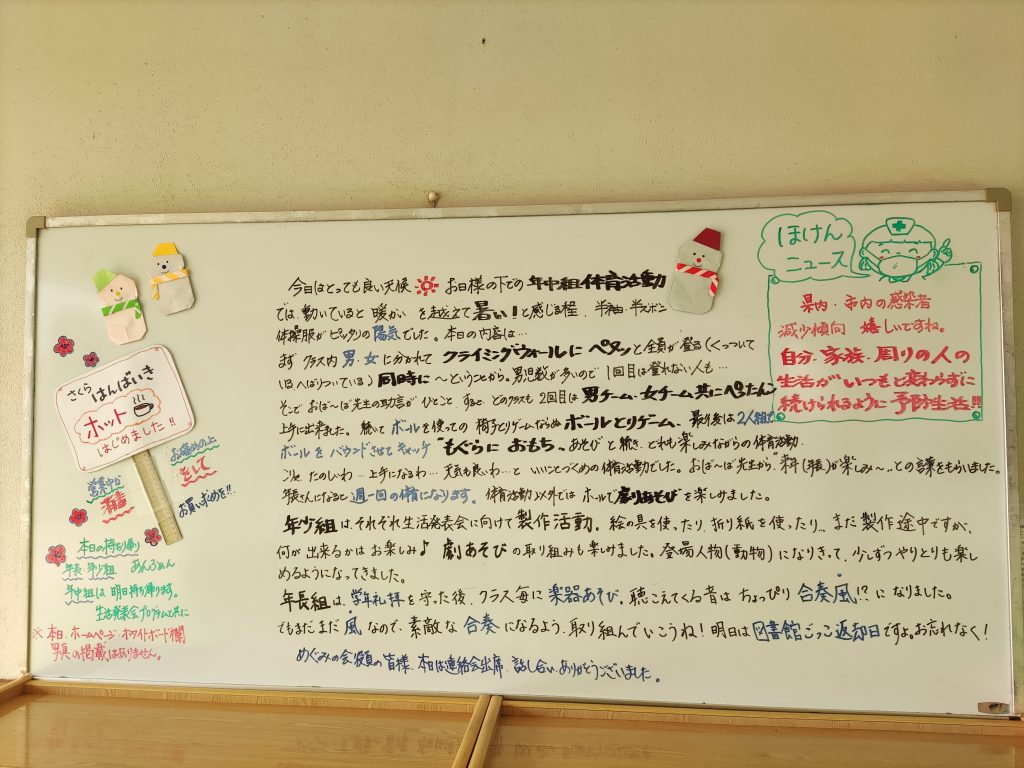 さくら
はんばいき
ホット
はじめました!!
お確めの上
営業中か
清書
をして
お買い求めを!!
本日の持ち帰り
年長・年少組 あんふぁん
年中組は明日持ち帰ります。
生活発表会プログラムと共に
※本日、ホームページ・ホワイトボード欄
写真の掲載はありません。
今日はとっても良い天候 お日様の下での 年中組体育活動
では、動いていると 暖かい を越え立て 暑い!と感じる程、半袖・半ズボン
体操服がピッタリの陽気でした。本日の内容は…
まず クラス内 男・女に分かれて クライミングウォールに ペタンと全員が登る(くっついて
はりついている)同時に ~ということから。男児数が多いので1回目は登れない人も…
そこで おば~ば先生の助言が ひとこと、すると どのクラスも 2回目は 男チーム・女チーム共にぺったんこ
上手に出来ました。続いて ボールを使っての 椅子とりゲームならぬ ボールとりゲーム、最後は2人組で
ボールを バウンドさせて キャッチ "もぐらに おもち"あそびと続き、どれも楽しみながらの体育活動。
たのしいわ… 上手になるわ… 元気も良いわ…と いいことづくめの体育活動でした。おば~ば先生から"来年(年長)が楽しみ~"との言葉をもらいました。
年長さんになると 週一回の体育になります。体育活動以外では ホールで劇あそびを楽しみました。
年少組は、それぞれ生活発表会に向けて製作活動。絵の具を使ったり、折り紙を使ったり、まだ製作途中ですが、
何が出来るかはお楽しみ♪ 劇あそびの取り組みも楽しみました。登場人物(動物)になりきって、少しずつやりとりも楽し
めるようになってきました。
年長組は、学年礼拝を守った後、クラス毎に楽器あそび。聴こえてくる音は ちょっぴり 合奏風!? になりました。
でもまだまだ 風 なので、素敵な 合奏 になるよう、取り組んでいこうね!明日は図書館ごっこ返却日ですよ。お忘れなく!
めぐみの会役員の皆様、本日は連絡会出席、話し合い、ありがとうございました。
ほけん
ニュース
県内・市内の感染者
減少傾向 嬉しいですね。
自分・家族・周りの人の
生活がいつもと変わらずに
続けられるように予防生活!!